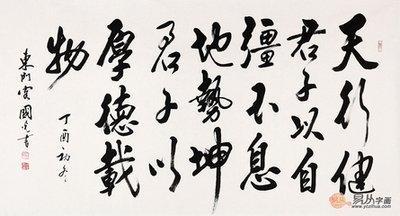 天行健
君子以自
彊不息
地勢坤
君子以
厚德載
物
丁酉初冬
東 國 書
易从字画
www.yczihua.com